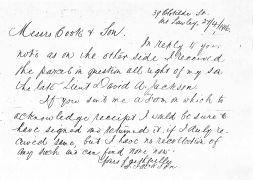 39 Clotilde St.
Mt Lawley, 27/4/1916.
Messrs Cook & Son.
In reply to your
note as on the other side I received
the parcel in question all right of my son
the late Lieut David A. Jackson.
If you sent me a form on which to
acknowledge receipt I would be sure to
have signed and returned it if I duly re-
ceived same, but I have no recollection of
any such and can find none now.
Yours faithfully